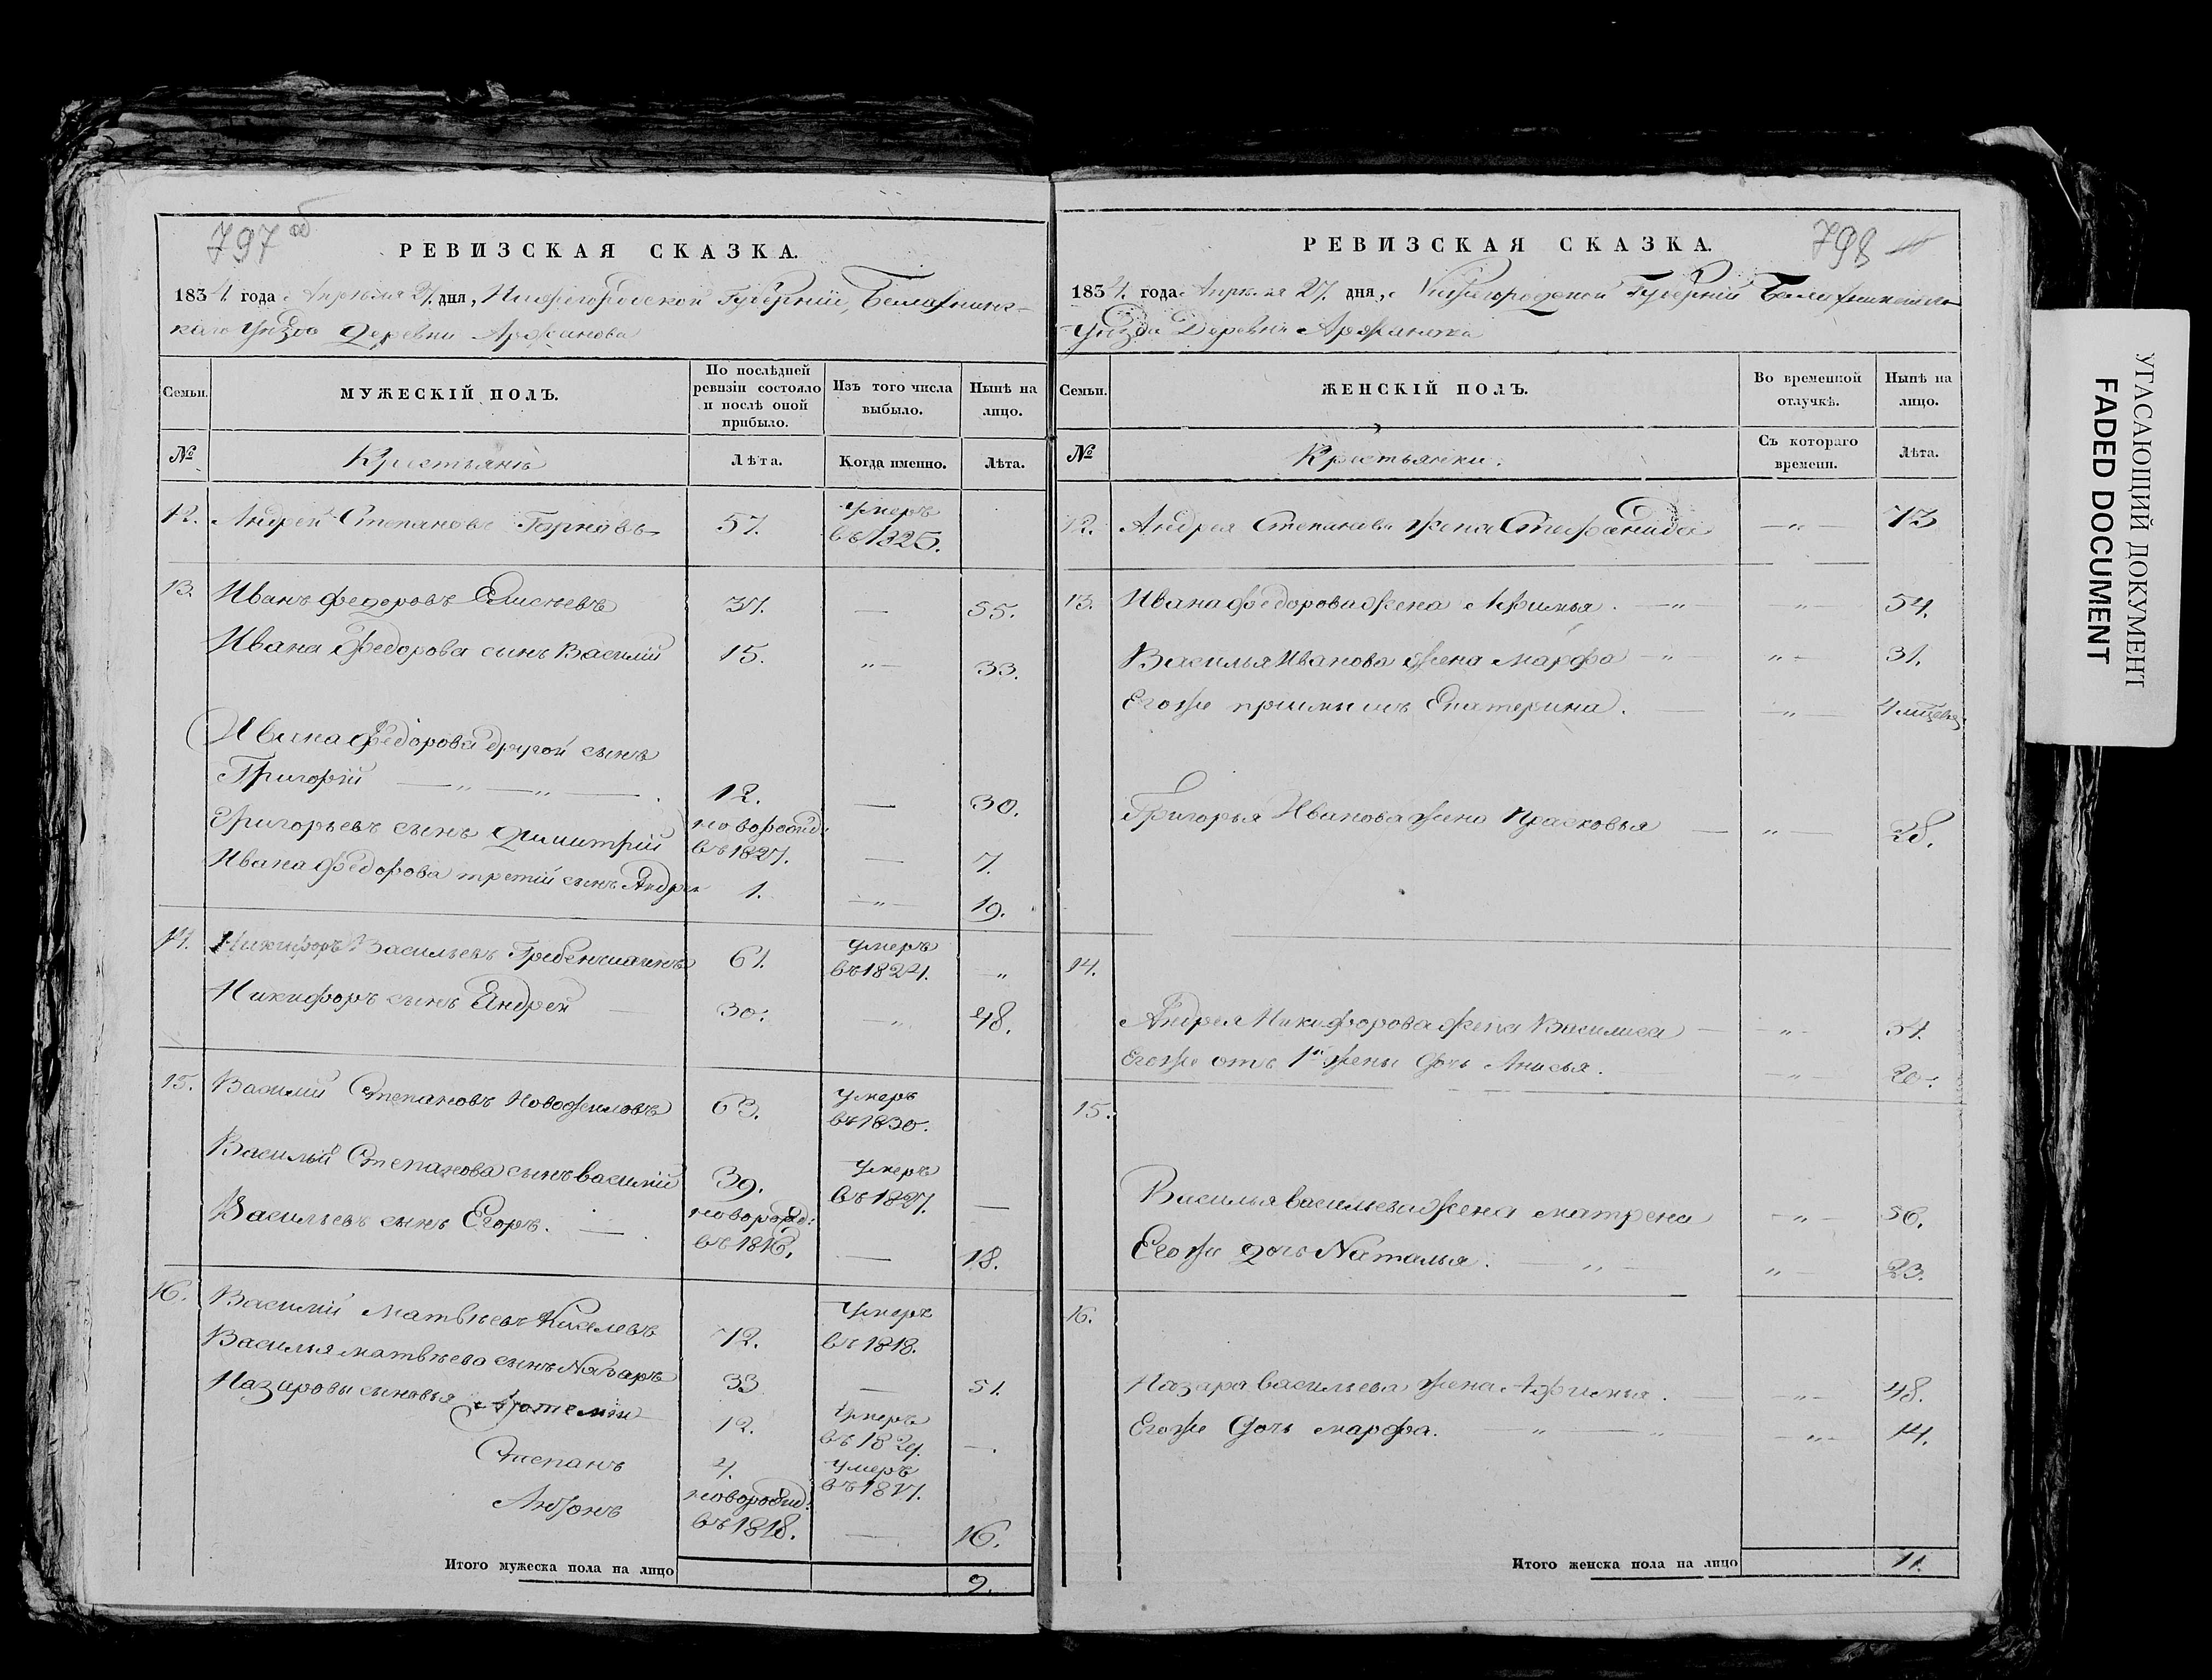 797 об
РЕВИЗСКАЯ СКАЗКА.
1834. года Апреля 27. дня, Нижегородской Губернїи, Балахнинс-
каго Уѣзда Деревни Аржанова
Семьи.
МУЖЕСКІЙ ПОЛЪ.
По послѣдней
ревизіи состояло
и послѣ оной
прибыло.
Изъ того числа
выбыло.
Нынѣ на
лицо.
№
Крестьянъ
Лѣта.
Когда именно.
Лѣта.
12. Андрей Степановъ 57. умеръ
въ 1825.
13. Иванъ Федоровъ Елисѣевъ 37. — 55.
Ивана Федорова сынъ Василий 15. „— 33.
Ивана Федорова другой сынъ
Григорій —„—„— . 12. — 30.
Григорьевъ сынъ Димитрій новорожд:
въ 1827. — 7.
Ивана Федорова третій сынъ Андрей 1. —„— 19.
14. Никифоръ Васильевъ 61. умеръ
въ 1824. „
Никифоръ сынъ Андрей 30. —„ 48.
15. Василий Степановъ Новожиловъ 63. умеръ
въ 1830.
Василий Степанова сынъ Василий 39. умеръ
въ 1827. —
Васильевъ сынъ Егоръ. — новорожд:
въ 1816. — 18.
16. Василий Матвѣевъ Киселевъ 72. умеръ
въ 1818.
Василья Матвѣева сынъ Назаръ 33 — 51.
Назаровы сыновья Артемий 12. умеръ
въ 1829. —.
Степанъ 4. умеръ
въ 1817.
Антонъ новорожд:
въ 1818. — 16.
Итого мужеска пола на лицо 9.
798
РЕВИЗСКАЯ СКАЗКА.
1834. года Апреля 27. дня, Нижегородской Губерній Балахнинскаго
Уѣзда Деревни
Семьи.
ЖЕНСКІЙ ПОЛЪ.
Во временной
отлучкѣ.
Нынѣ на
лицо.
№
Крестьянки.
Съ котораго
времени.
Лѣта.
12. Андрея Степанова жена Стефанида —„— 73
13. Ивана Федорова жена Афимья. —„ „— 54.
Василья Иванова жена Марфа —„— „— 31.
Егоже приимышъ Екатерина. — —„—
Григорья Иванова жена Прасковья — „— 28.
14.
Андрея Никифорова жена Василиса — „— 34.
Егоже отъ 1й жены дочь Анисья. —„— 20.
15.
Василья Васильева жена Матрена —„— 56.
Егоже дочь Наталья. —„— „— 23.
16.
Назара Васильева жена Афимья. „— 48.
Егоже дочь Марфа. —„—„ —„— 14.
Итого женска пола на лицо 11.
УГАСАЮЩИЙ ДОКУМЕНТ
FADED DOCUMENT